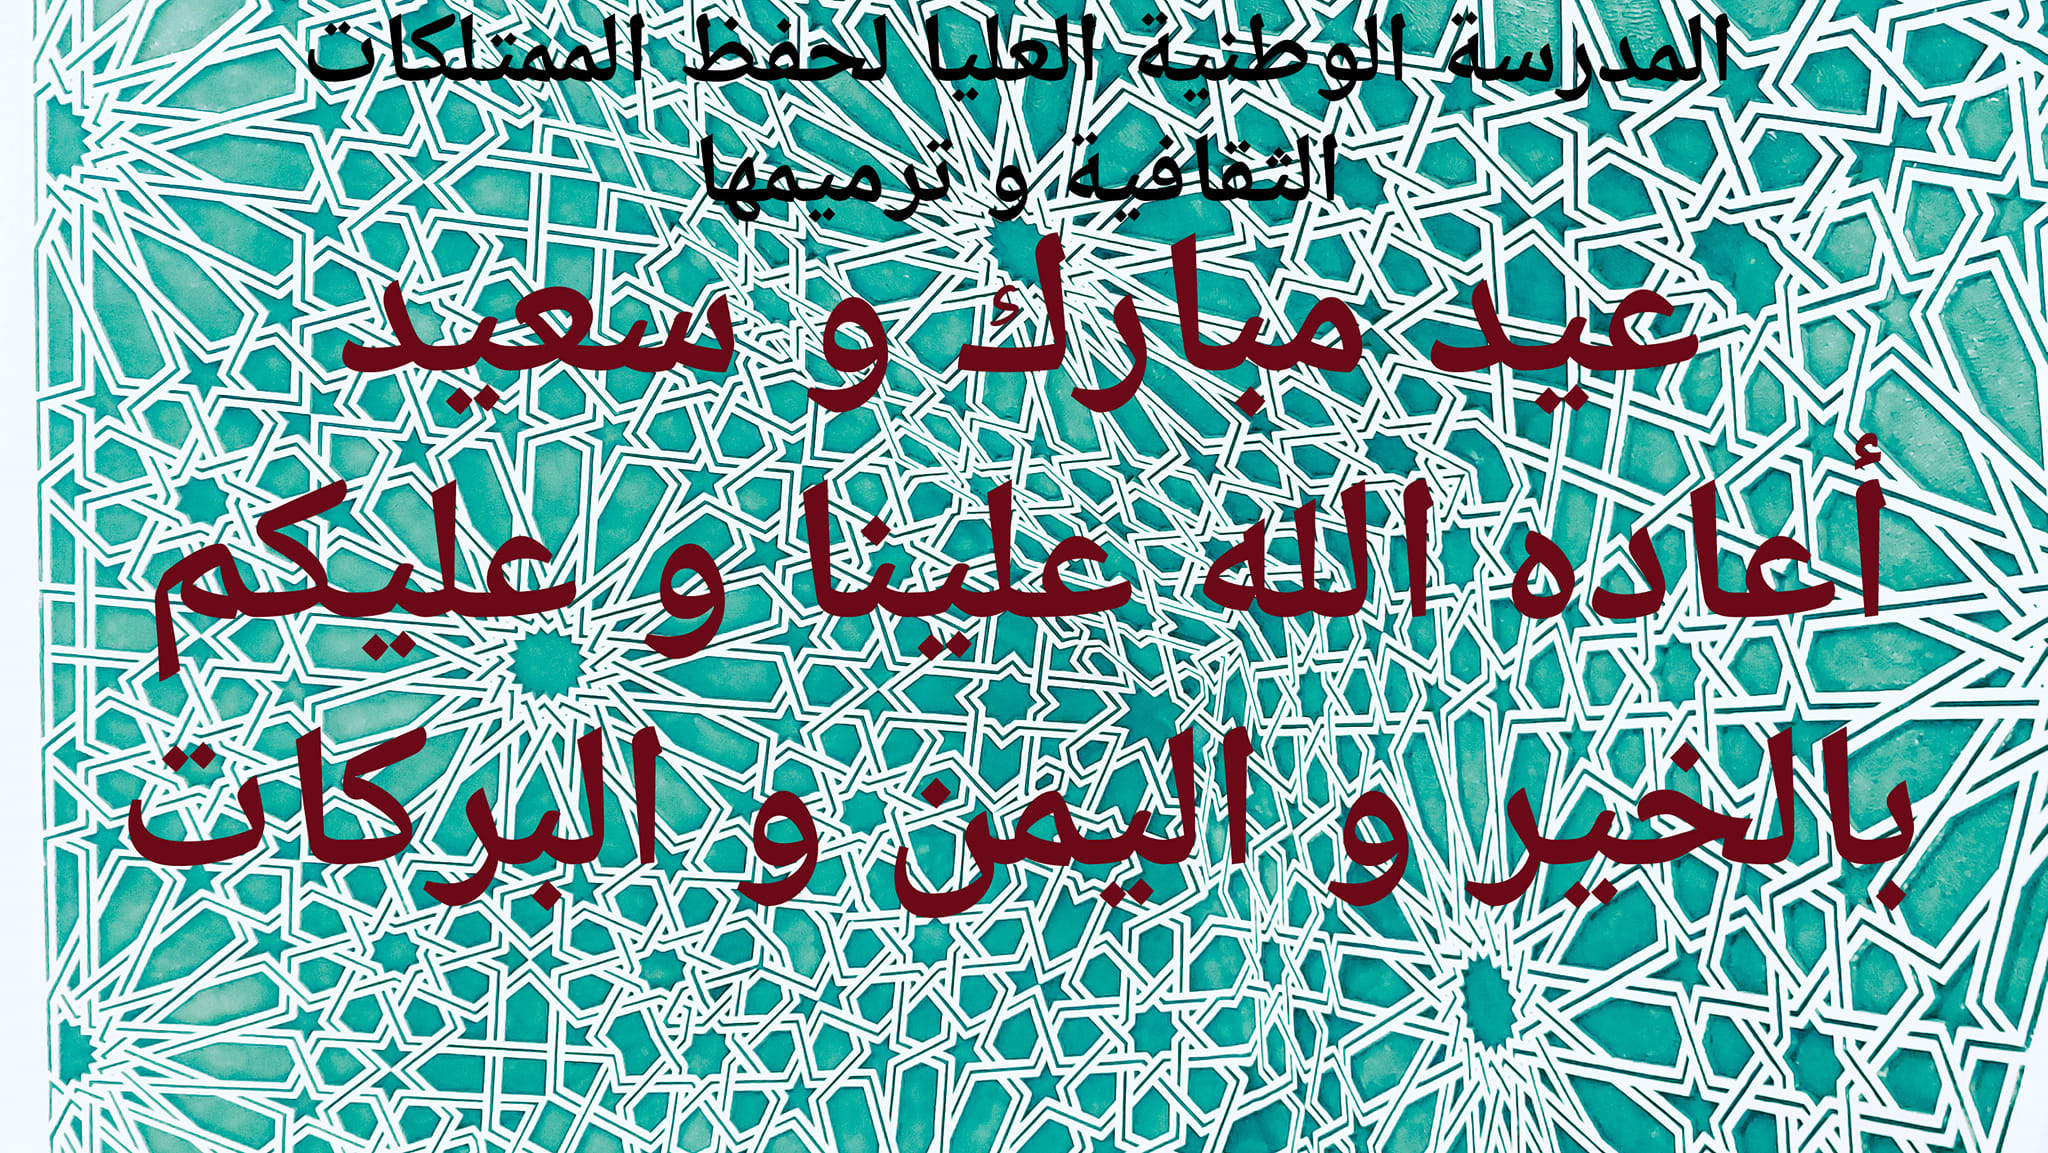 المدرسة الوطنية العليا لحفظ الممتلكات
الثقافية و ترميمها
عيد مبارك و سعيد
أعاده الله علينا و عليكم
بالخير و اليمن و البركات